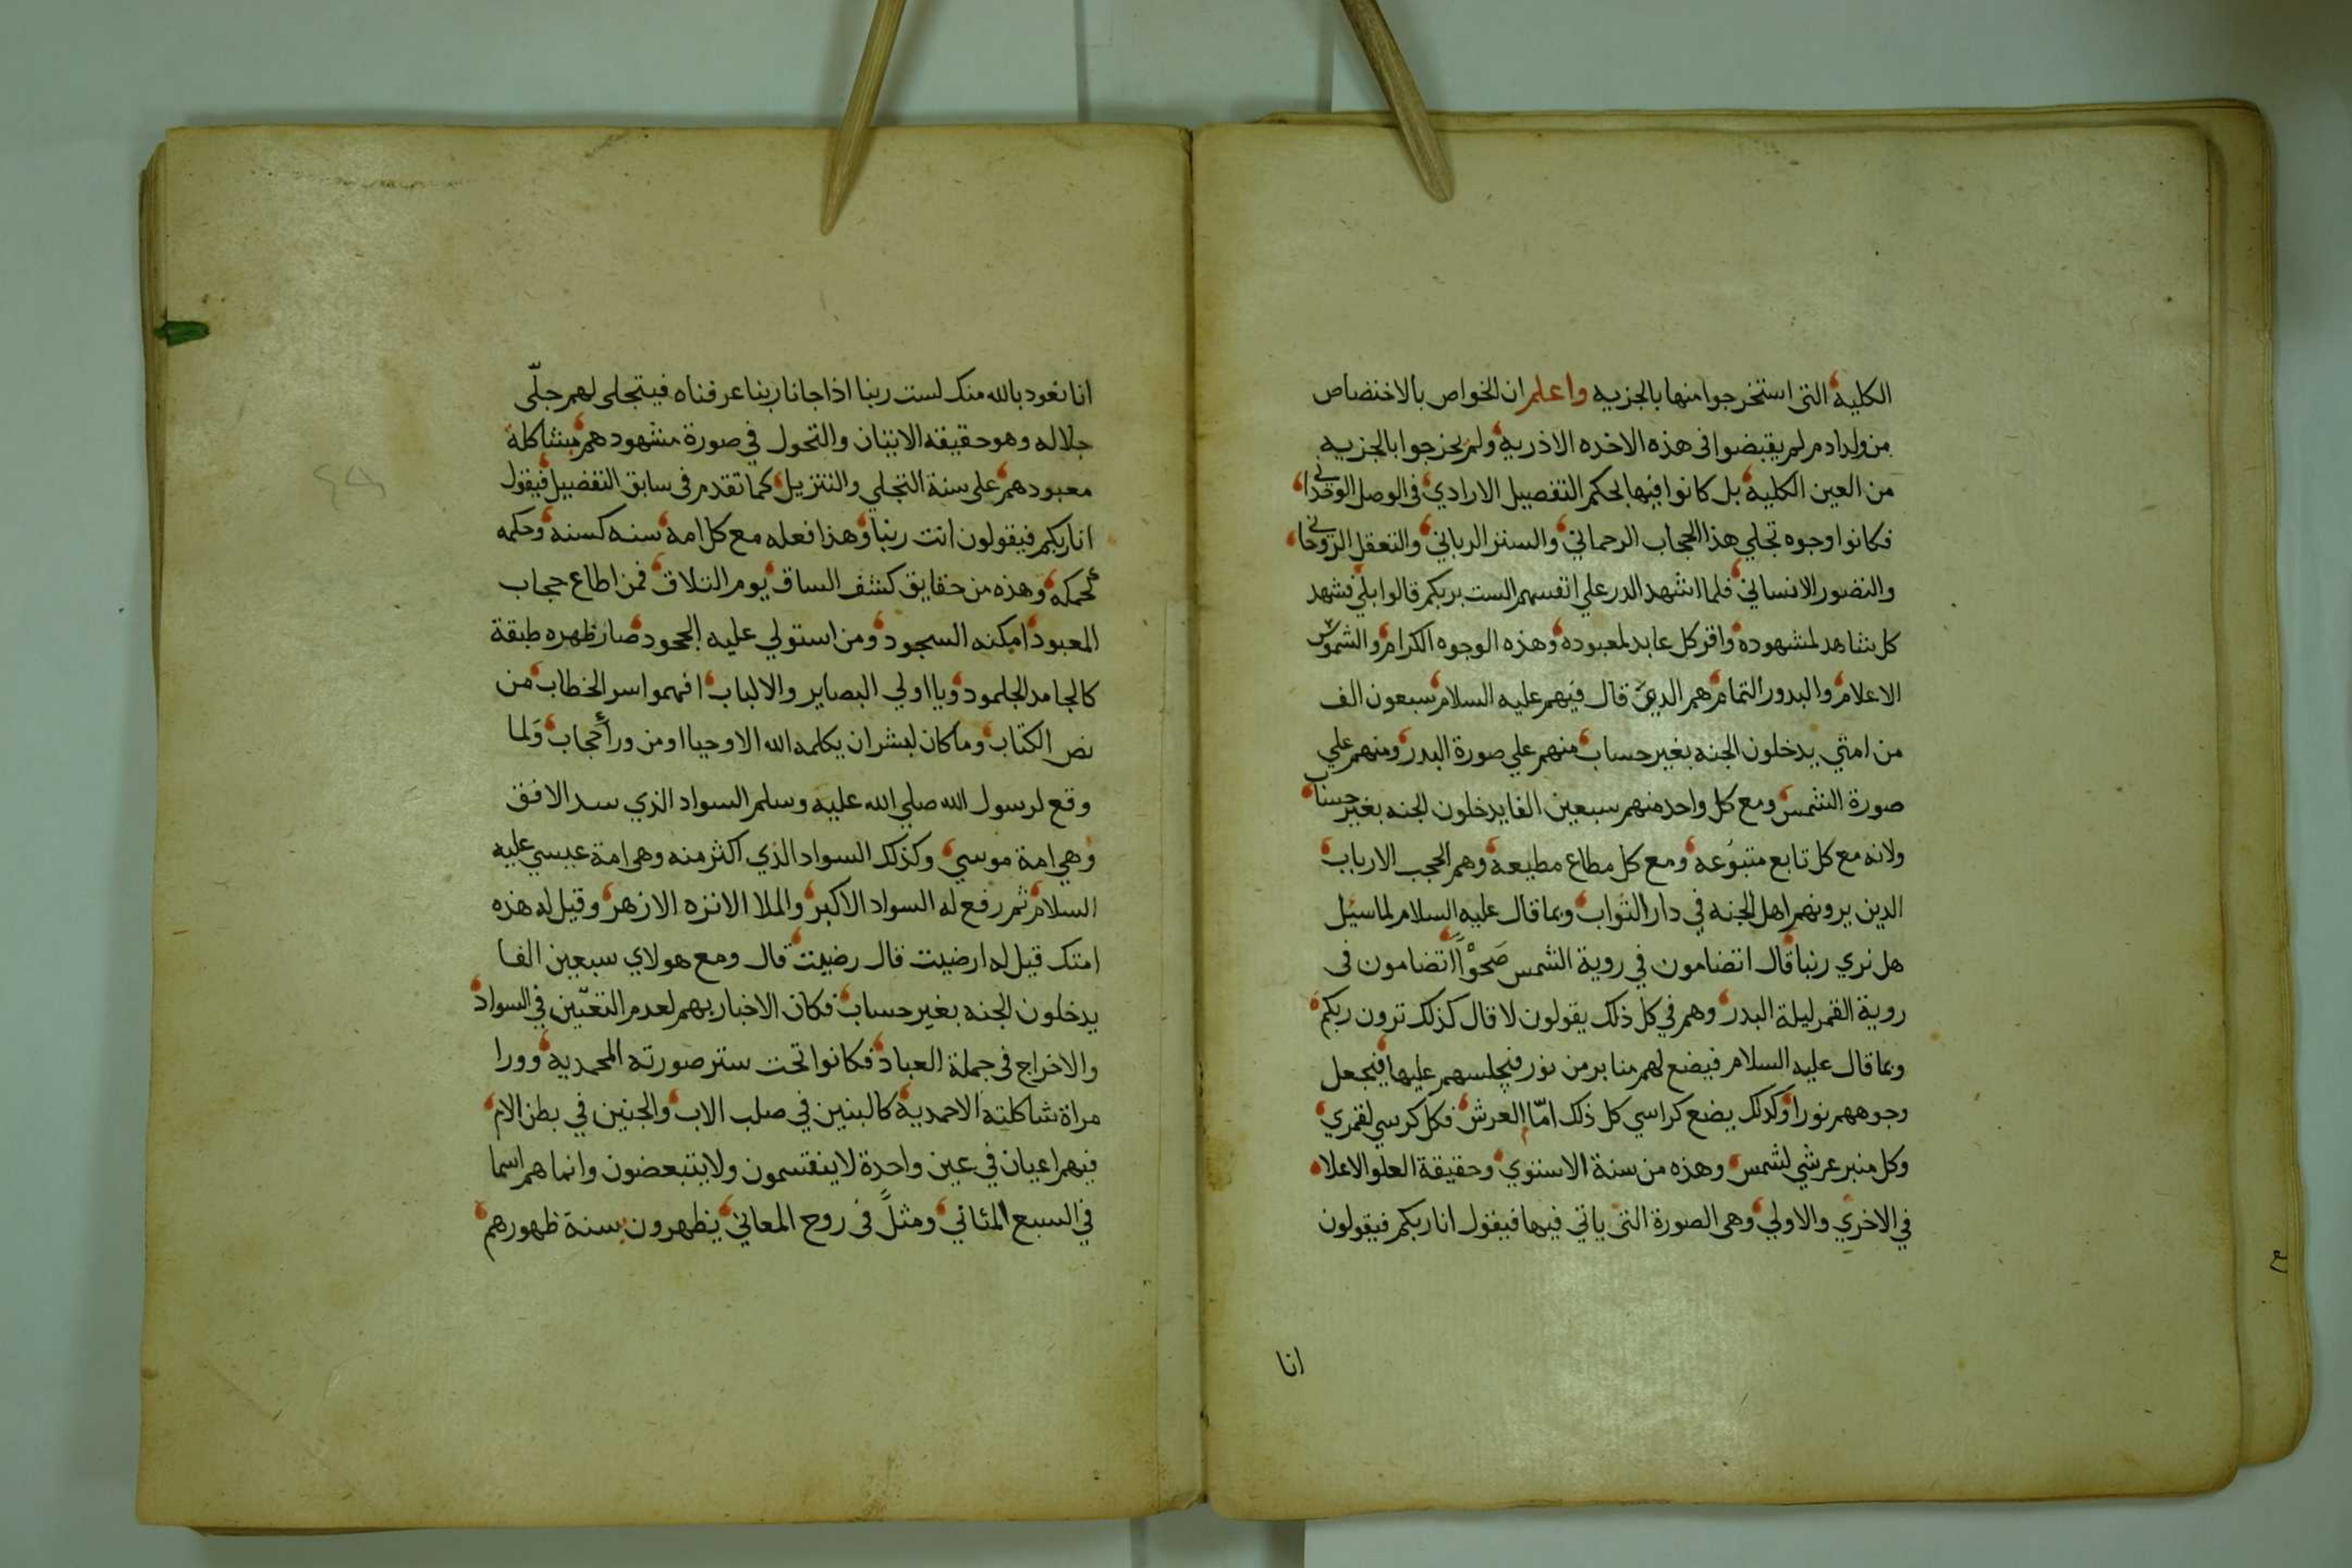 الكلية التي استخرجوا منها بالجزيه واعلم ان الخواص بالاختصاص
من ولد ادم لم يقبضوا في هذه الاخذه الاذريه ولم يخرجوا بالجزيه
من العين الكليه بل كانوا فيها بحكم التفصيل الارادي في الوصل الوحداني
فكانوا وجوه تجلي هذا الحجاب الرحماني والستر الرباني والتعقل الروحاني
والتصور الانساني فلما اشهد الدر علي انفسهم الست بربكم قالوا بلي فشهد
كل شاهد لمشهوده واقر كل عابد لمعبوده وهذه الوجوه الكرام والشموس
الاعلام والبدور التمام هم الذين قال فيهم عليه السلام سبعون الف
من امتي يدخلون الجنه بغير حساب منهم علي صورة البدر ومنهم علي
صورة الشمس ومع كل واحد منهم سبعين الفا يدخلون الجنه بغير حساب
ولانه مع كل تابع متبوعه ومع كل مطاع مطيعه وهم الحجب الارباب
الدين يرونهم اهل الجنه في دار الثواب وبما قال عليه السلام لما سئل
هل نري ربنا قال اتضامون في روية الشمس صحوا اتضامون في
روية القمر ليلة البدر وهم في كل ذلك يقولون لا قال كذلك ترون ربكم
وبما قال عليه السلام فيضع لهم منابر من نور فيجلسهم عليها فيجعل
وجوههم نورا وكدلك يضع كراسي كل ذلك امّا العرش فكل كرسي لقمري
وكل منبر عرشي لشمس وهذه من سنة الاستوي وحقيقة العلو الاعلا
في الاخري والاولي وهي الصورة التي ياتي فيها فيقول انا ربكم فيقولون
انا
انا نعود بالله منك لست ربنا اذا جانا ربنا عرفناه فيتجلي لهم جلّى
جلاله وهو حقيقه الاتيان والتحول في صورة مشهودهم بشاكلة
معبودهم علي سنة التجلي والتنزيل كما تقدم في سابق التفصيل فيقول
انا ربكم فيقولون انت ربنا وهذا فعله مع كل امه سنه كسنه وحكمه
كحكمه وهذه من حقايق كشف الساق يوم التلاق فمن اطاع حجاب
المعبود امكنه السجود ومن استولي عليه الجحود صار ظهره طبقة
كالجامد الجلمود ويا اولي البصاير والالباب افهموا سر الخطاب من
نص الكتاب وما كان لبشر ان يكلمه الله الا وحيا او من ورأ حجاب ولما
وقع لرسول الله صلي الله عليه وسلم السواد الذي سد الافق
وهي امة موسي وكذلك السواد الذي اكثر منه وهي امة عيسي عليه
السلام ثم رفع له السواد الاكبر والملا الانزه الازهر وقيل له هذه
امتك قيل له ارضيت قال رضيت قال ومع هولاي سبعين الفا
يدخلون الجنه بغير حساب فكان الاخبار بهم لعدم التعيّين في السواد
والاخراج في جملة العباد فكانوا تحت ستر صورته المحمديه وورا
مراة شاكلته الاحمدية كالبنين في صلب الاب والجنين في بطن الام
فيهم اعيان في عين واحدة لا ينقسمون ولا يتبعضون وانما هم اسما
في السبع المثاني ومثلً في روح المعاني يظهرون بسنة ظهورهم